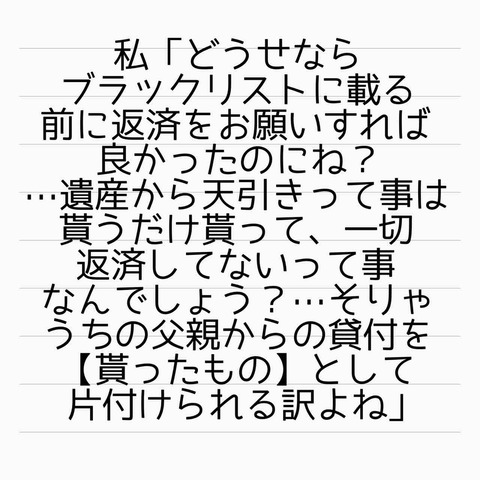 私「どうせなら
ブラックリストに載る
前に返済をお願いすれば
良かったのにね？
…遺産から天引きって事は
貰うだけ貰って、一切
返済してないって事
なんでしょう？…そりゃ
うちの父親からの貸付を
【貰ったもの】として
片付けられる訳よね」